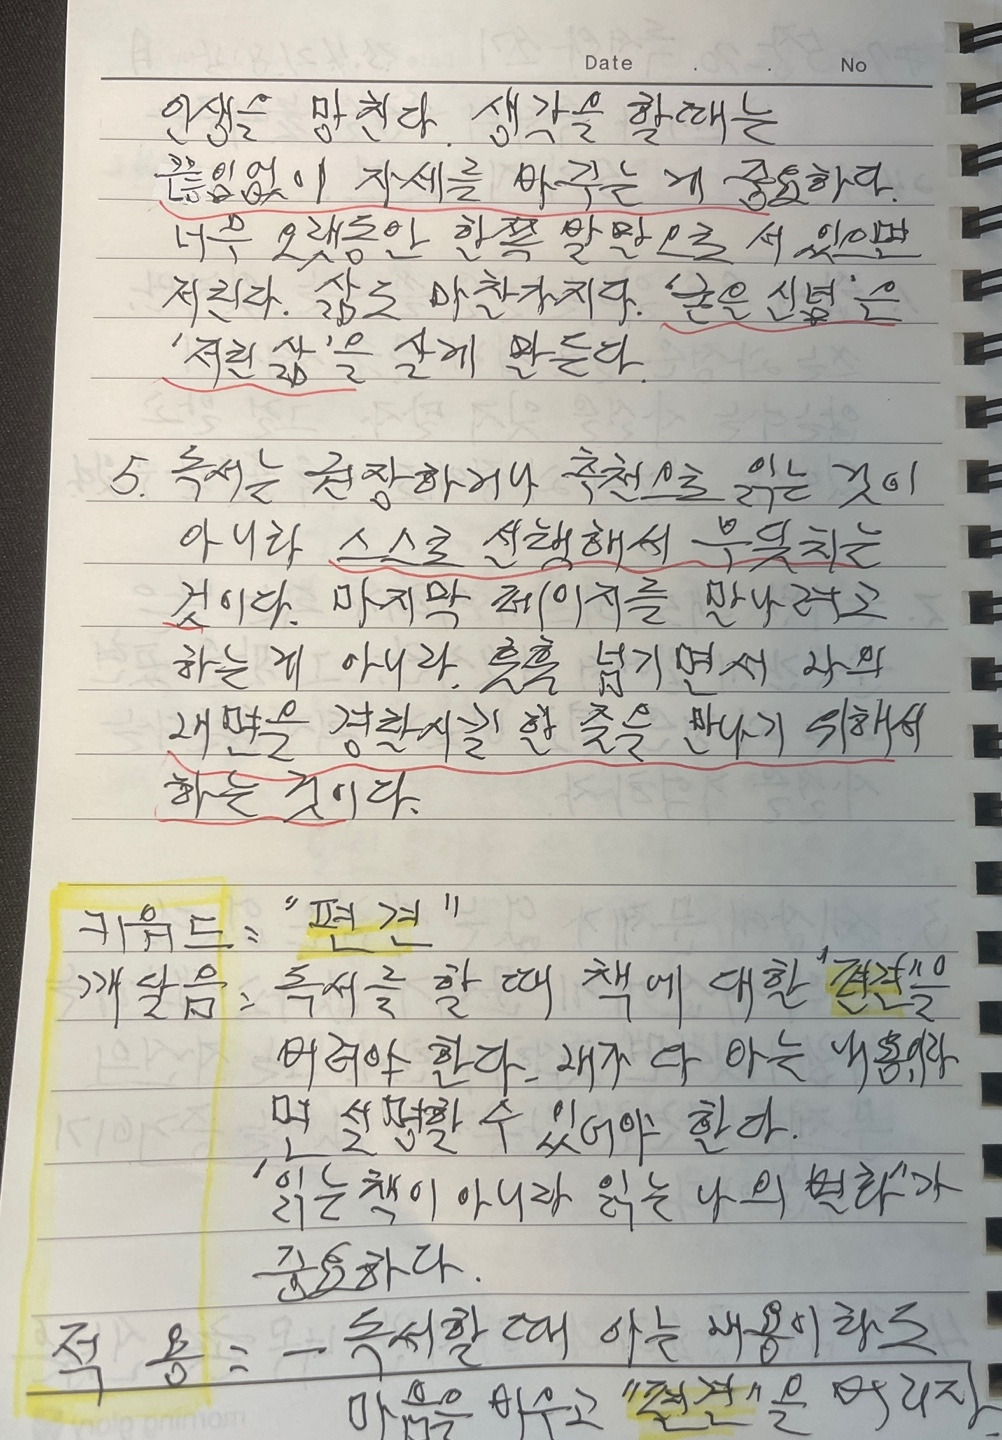 Date . . No
인생을 망친다. 생각을 할때는
끊임없이 자세를 바꾸는 게 중요하다.
너무 오랫동안 한쪽 발만으로 서 있으면
저린다. 삶도 마찬가지다. '굳은 신념'은
'저린 삶'을 살게 만든다.
5. 독서는 권장하거나 추천으로 읽는 것이
아니라 스스로 선택해서 부딪치는
것이다. 마지막 페이지를 만나려고
하는 게 아니라. 훅훅 넘기면서 나의
내면을 경탄시킬 한 줄을 만나기 위해서
하는 것이다.
키워드 = "편견"
깨달음 = 독서를 할 때 책에 대한 '편견"을
버려야 한다. 내가 다 아는 내용이라
면 설명할 수 있어야 한다.
'읽는 책이 아니라 읽는 나의 변화"가
중요하다.
적 용 = - 독서할 때 아는 내용이라도
마음을 비우고 "편견"을 버리자
morning glory